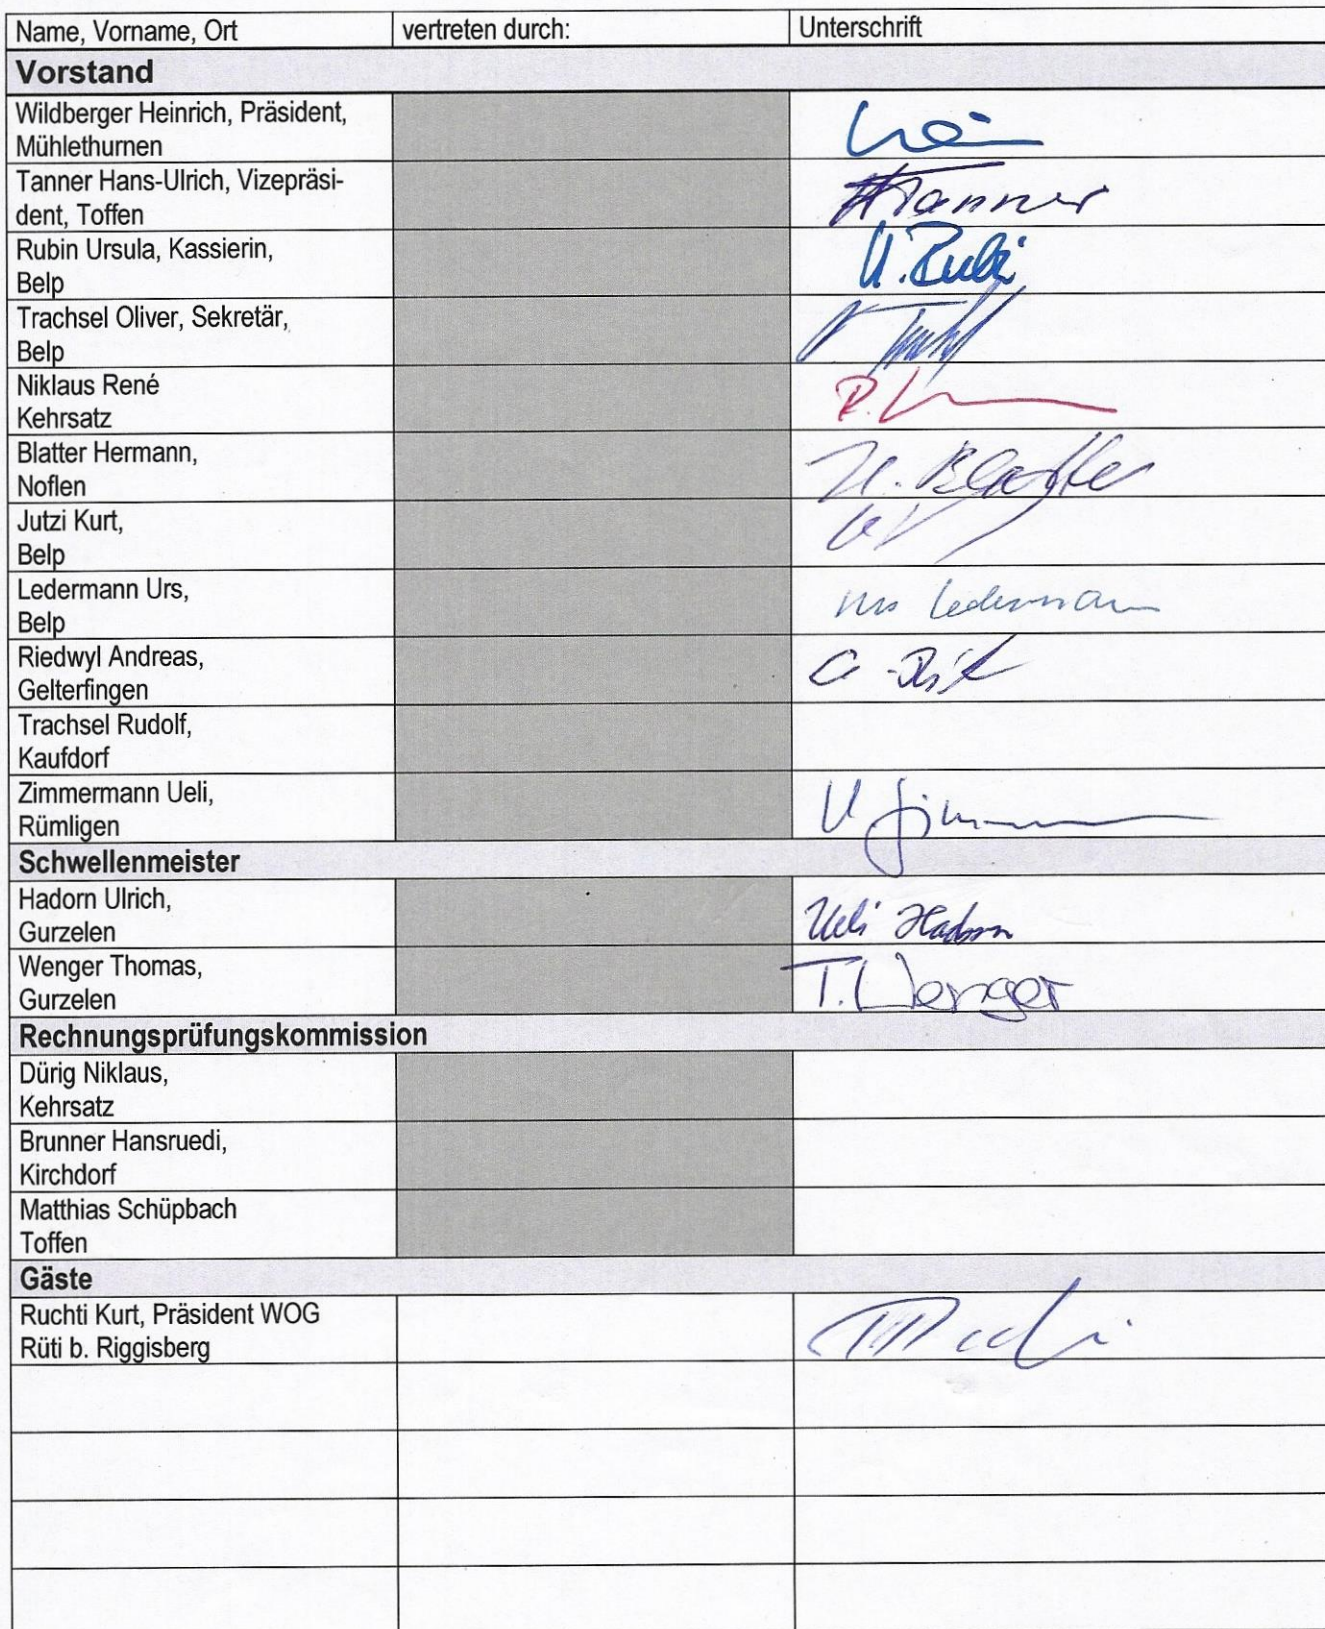 Name, Vorname, Ort vertreten durch: Unterschrift
Vorstand
Wildberger Heinrich, Präsident,
Mühlethurnen
Tanner Hans-Ulrich, Vizepräsi-
dent, Toffen
HTanner
Rubin Ursula, Kassierin,
Belp
U. Rubi
Trachsel Oliver, Sekretär,
Belp
Niklaus René
Kehrsatz
Blatter Hermann,
Noflen
H. Blatter
Jutzi Kurt,
Belp
Ledermann Urs,
Belp
Urs Ledermann
Riedwyl Andreas,
Gelterfingen
Trachsel Rudolf,
Kaufdorf
Zimmermann Ueli,
Rümligen
Schwellenmeister
Hadorn Ulrich,
Gurzelen
Ueli Hadorn
Wenger Thomas,
Gurzelen
T. Wenger
Rechnungsprüfungskommission
Dürig Niklaus,
Kehrsatz
Brunner Hansruedi,
Kirchdorf
Matthias Schüpbach
Toffen
Gäste
Ruchti Kurt, Präsident WOG
Rüti b. Riggisberg